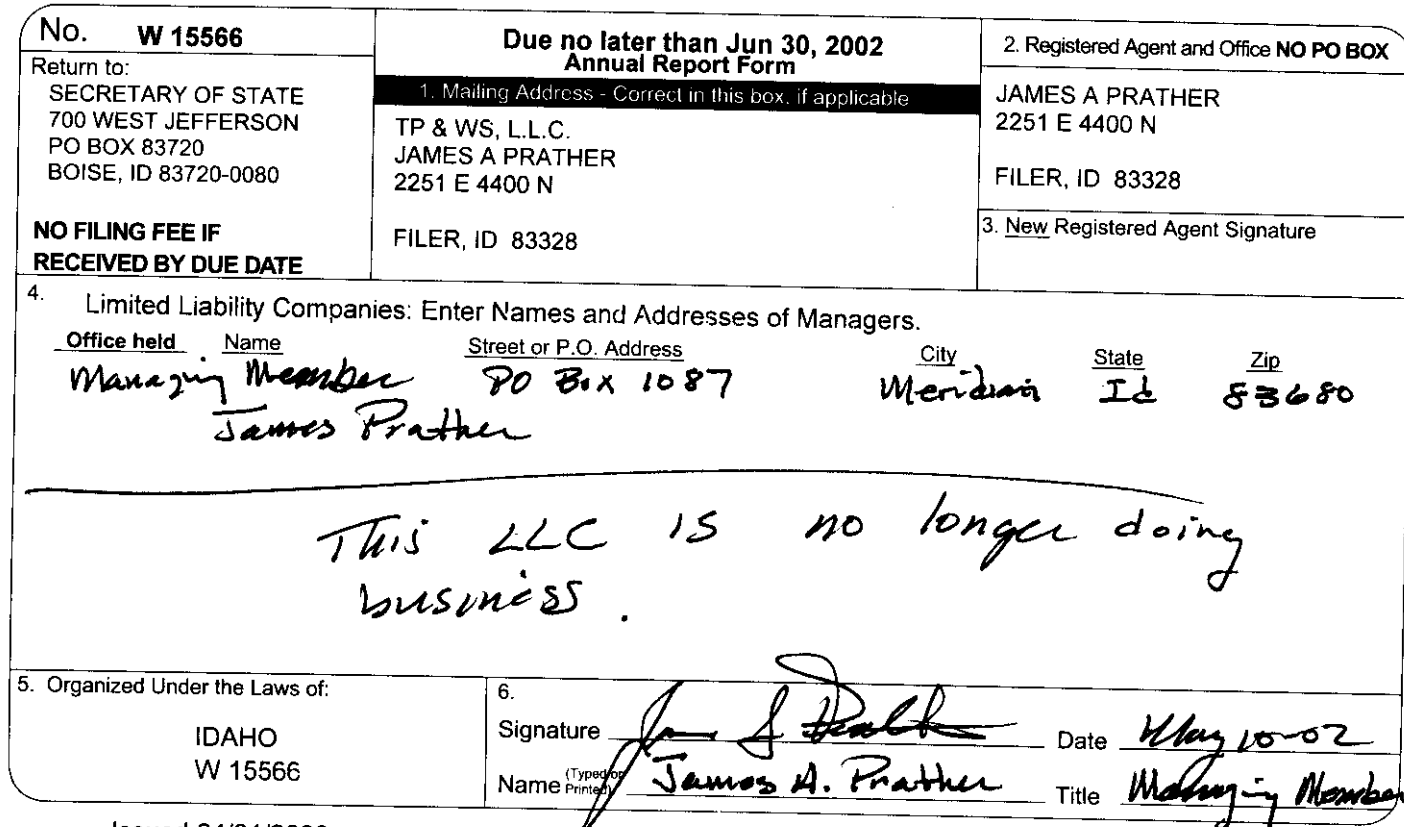 No. W 15566
Return to:
SECRETARY OF STATE
700 WEST JEFFERSON
PO BOX 83720
BOISE, ID 83720-0080
NO FILING FEE IF
RECEIVED BY DUE DATE
Due no later than Jun 30, 2002
Annual Report Form
1. Mailing Address - Correct in this box, if applicable
TP & WS, L.L.C.
JAMES A PRATHER
2251 E 4400 N
FILER, ID 83328
2. Registered Agent and Office NO PO BOX
JAMES A PRATHER
2251 E 4400 N
FILER, ID 83328
3. New Registered Agent Signature
4. Limited Liability Companies: Enter Names and Addresses of Managers.
Office held Name Street or P.O. Address City State Zip
Managing Member PO Box 1087 Meridian Id 83680
James Prather
This LLC is no longer doing
business.
5. Organized Under the Laws of:
IDAHO
W 15566
6.
Signature Date May 10-02
Name (Typed or Printed) James A. Prather Title Managing Member